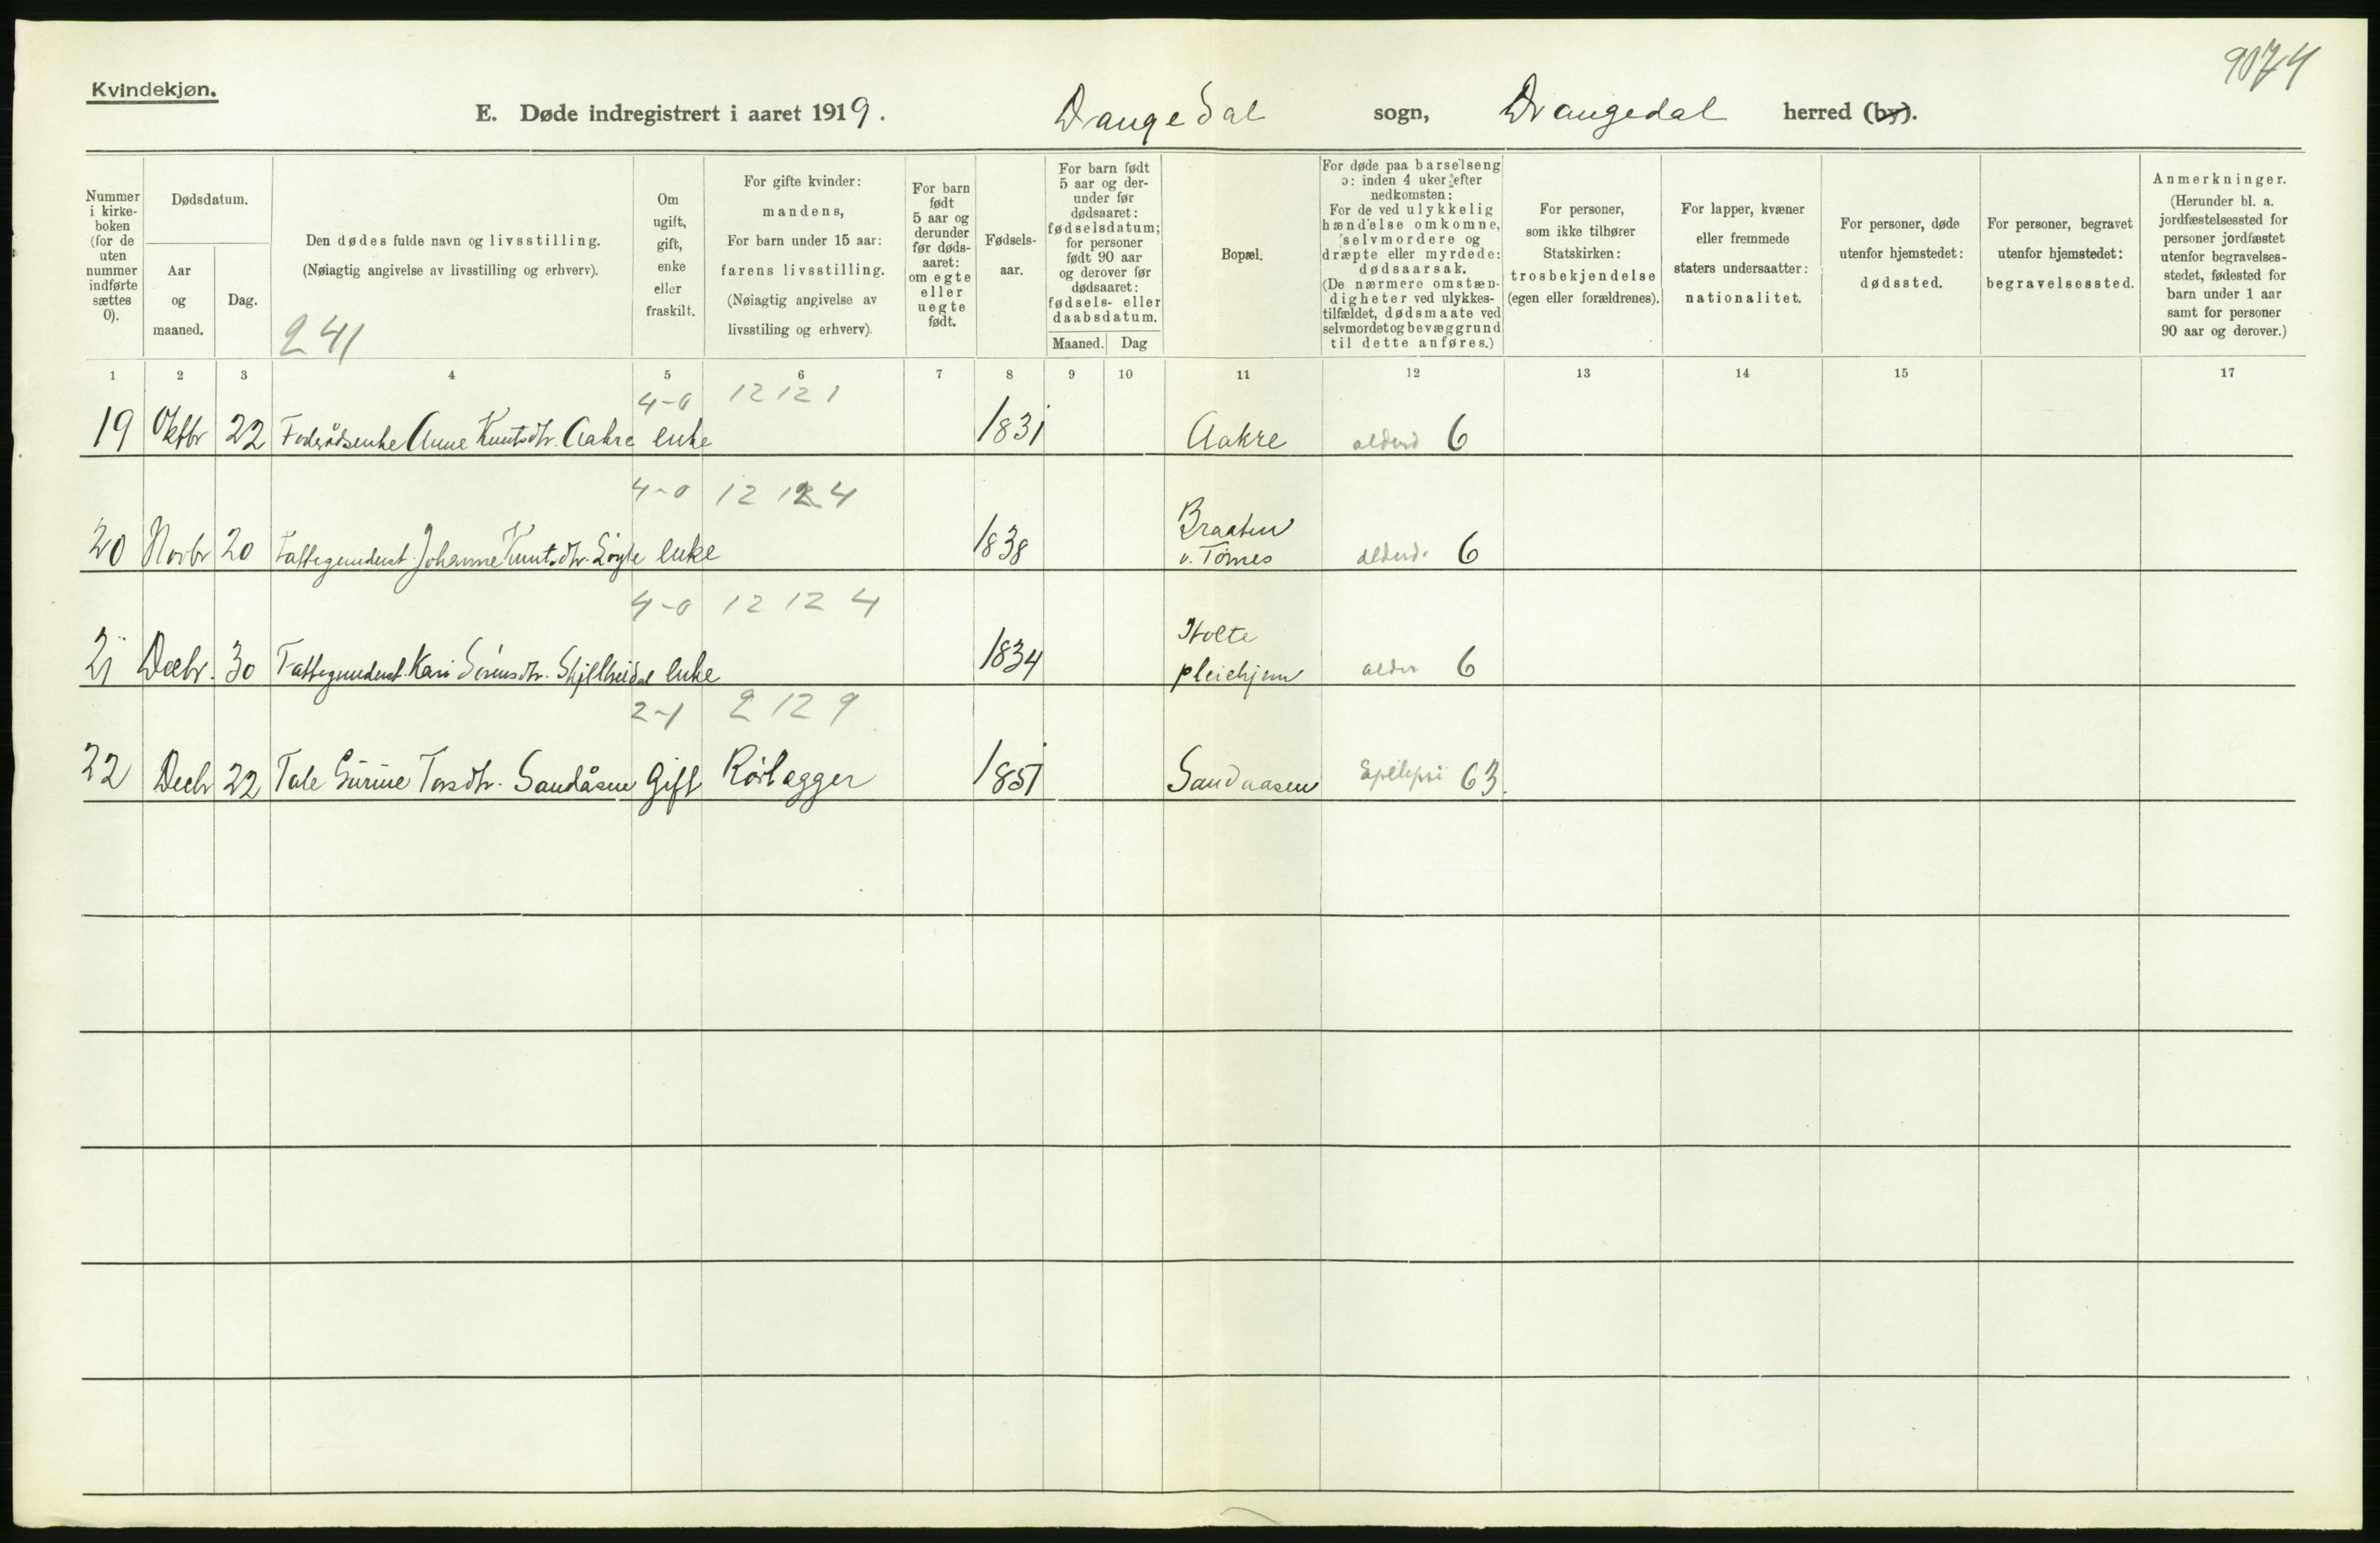 9074
Kvindekjøn.
E. Døde indregistrert i aaret 1919. Drangedal sogn, Drangedal herred (by).
Nummer i kirke-boken (for de uten nummer indførte sættes 0).
Dødsdatum.
Aar og maaned.
Dag.
Den dødes fulde navn og livsstilling.
(Nøiagtig angivelse av livsstilling og erhverv).
241
Om ugift, gift, enke eller fraskilt.
For gifte kvinder:
mandens,
For barn under 15 aar:
farens livsstilling.
(Nøiagtig angivelse av
livsstiling og erhverv).
For barn født 5 aar og derunder før døds-aaret: om egte eller uegte født.
Fødsels-aar.
For barn født
5 aar og der-
under før
dødsaaret:
fødselsdatum;
for personer
født 90 aar
og derover før
dødsaaret:
fødsels- eller
daabsdatum.
Maaned. Dag
Bopæl.
For døde paa barselseng
ɔ: inden 4 uker efter
nedkomsten:
For de ved ulykkelig
hændelse omkomne,
selvmordere og
dræpte eller myrdede:
dødsaarsak.
(De nærmere omstæn-
digheter ved ulykkes-
tilfældet, dødsmaate ved
selvmordet og bevæggrund
til dette anføres.)
For personer,
som ikke tilhører
Statskirken:
trosbekjendelse
(egen eller forældrenes).
For lapper, kvæner
eller fremmede
staters undersaatter:
nationalitet.
For personer, døde
utenfor hjemstedet:
dødssted.
For personer, begravet
utenfor hjemstedet:
begravelsessted.
Anmerkninger.
(Herunder bl. a.
jordfæstelsessted for
personer jordfæstet
utenfor begravelses-
stedet, fødested for
barn under 1 aar
samt for personer
90 aar og derover.)
1 2 3 4 5 6 7 8 9 10 11 12 13 14 15 17
4-0 12 12 1
19 Oktbr 22 Føderådsenke Anne Knutsdtr. Aakre enke 1831 Aakre alderd 6
4-0 12 12 4
20 Novbr 20 Fattigunderst. Johanne Knutsdtr. enke 1838 Braaten v. Tørnes alderd. 6
4-0 12 12 4
21 Decbr. 30 Fattigunderst. Kari Sørensdtr. enke 1834 Holte pleiehjem alder 6
2-1 2 12 9
22 Decbr 22 Tale Gurine Torsdtr. Sandåsen Gift Rørlægger 1851 Sandaasen Epilepsi 63.